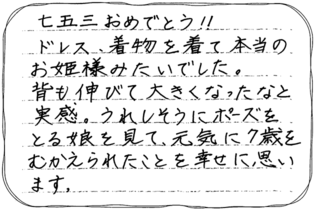 七五三おめでとう!!
ドレス、着物を着て本当の
お姫様みたいでした。
背も伸びて大きくなったなと
実感。うれしそうにポーズを
とる娘を見て、元気に7歳を
むかえられたことを幸せに思い
ます。